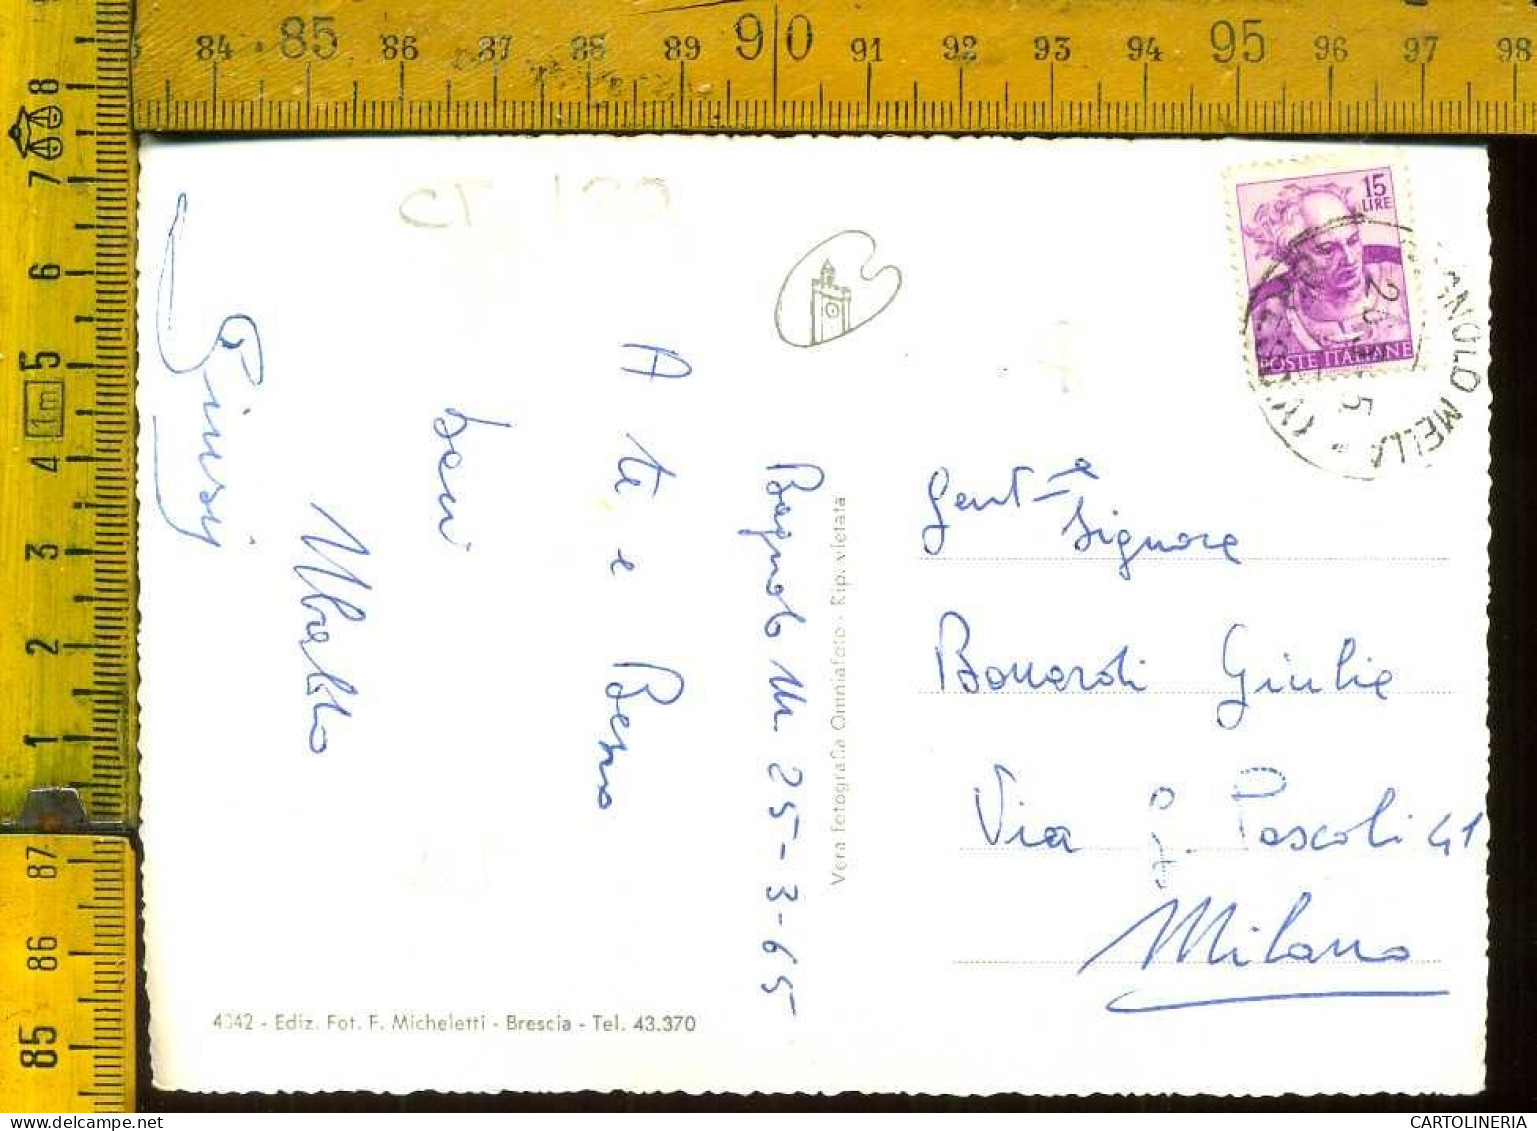 84 85 86 87 88 89 90 91 92 93 94 95 96 97 98
8
7
6
5
1m
4
3
2
1
87
86
85
15
LIRE
POSTE ITALIANE
BAGNOLO MELLA
Gent-a
Signora
Bonardi Giulia
Via G. Pascoli 41
Milano
Vera fotografia Omniafoto - Rip. vietata
Bagnolo M. 25-3-65
A te e Beppo
baci
Giusi
4042 - Ediz. Fot. F. Micheletti - Brescia - Tel. 43.370
CARTOLINERIA